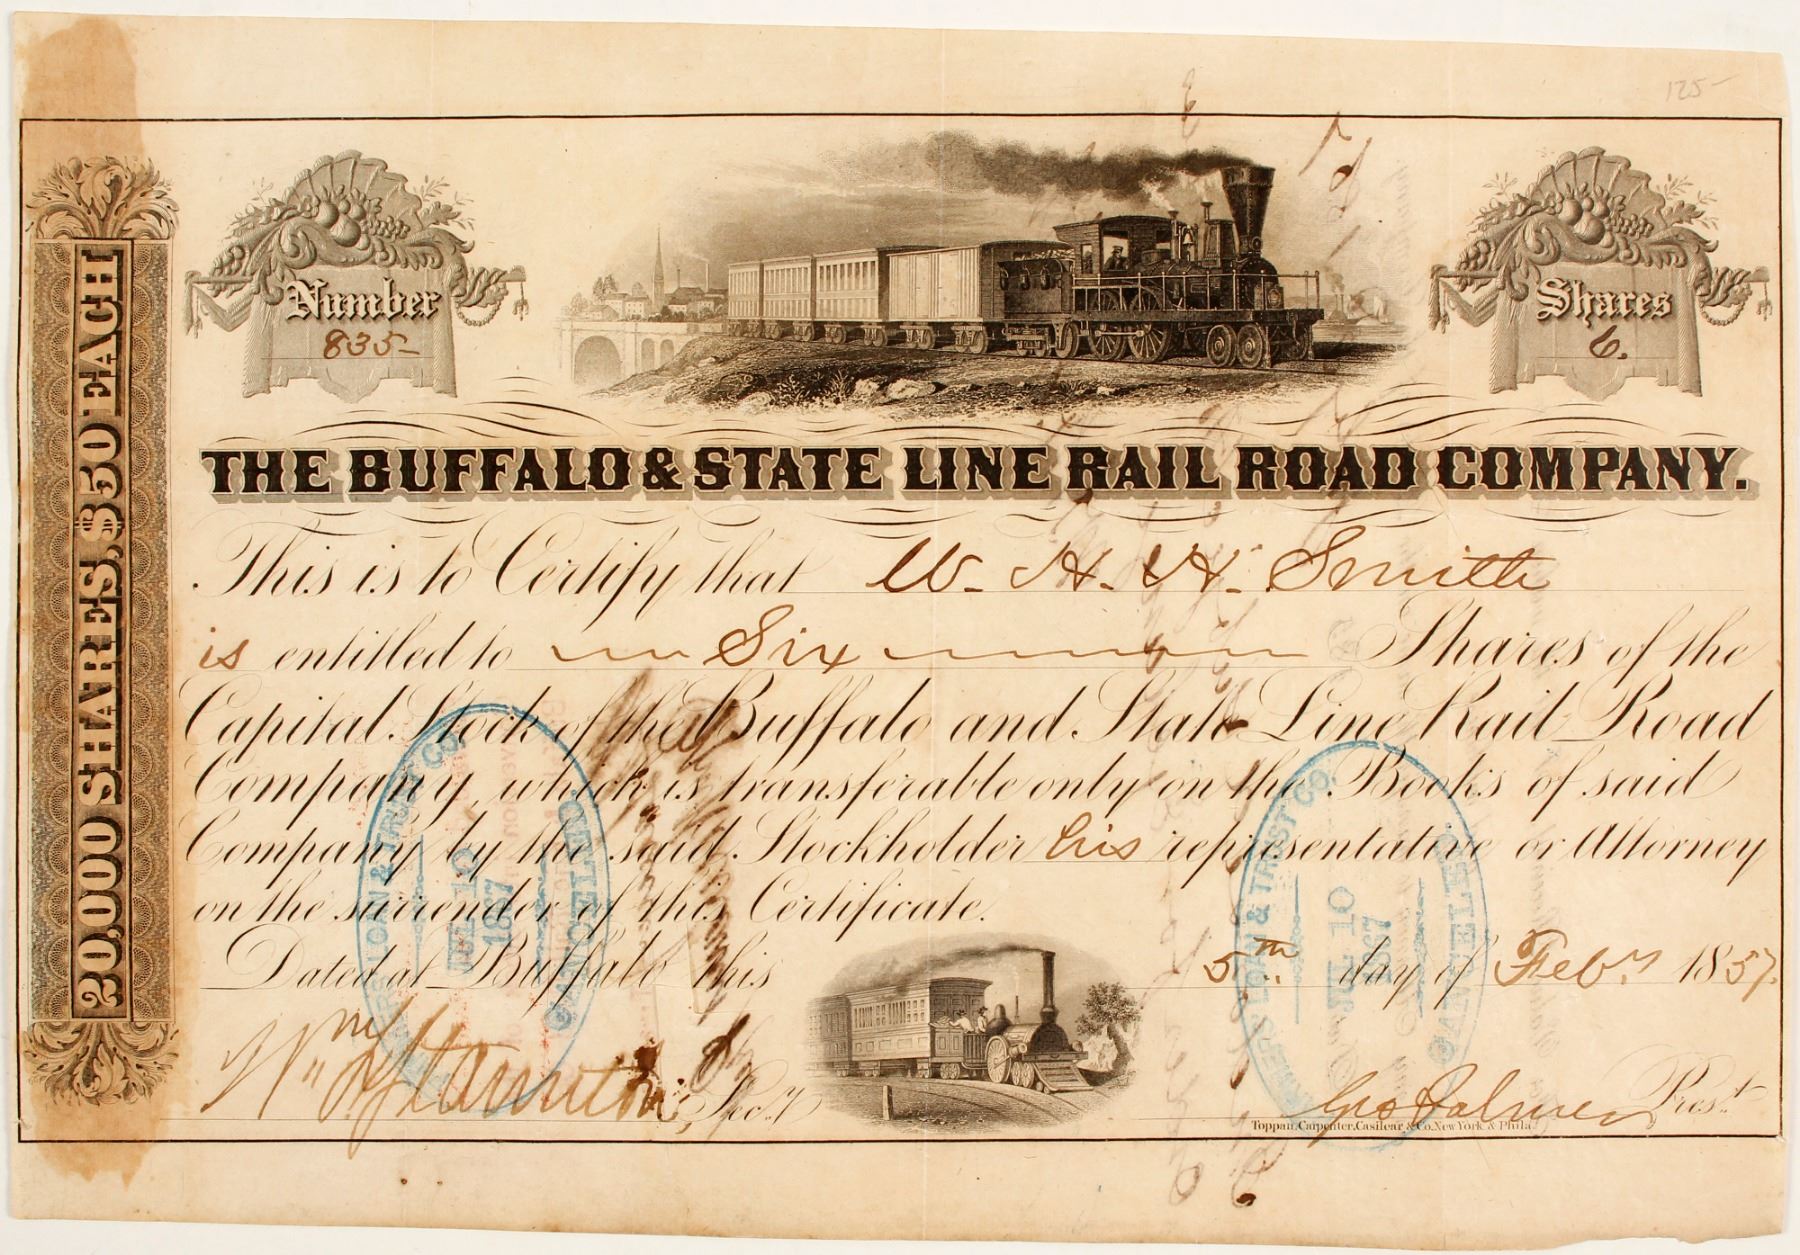 125-
Number
835-
Shares
6.
20,000 SHARES, $50 EACH
THE BUFFALO & STATE LINE RAIL ROAD COMPANY.
This is to Certify that W. H. H. Smith
is entitled to Six Shares of the
Capital Stock of the Buffalo and State Line Rail Road
Company, which is transferable only on the Books of said
Company by the said Stockholder his representative or Attorney
on the surrender of this Certificate.
Dated at Buffalo this 5th day of Feby 1857.
Secy.
Geo Palmer Prest.
Toppan, Carpenter, Casilear & Co. New York & Phila.
LOAN & TRUST CO.
JUL 10
1867
CANCELLED
LOAN & TRUST CO.
JUL 10
1867
CANCELLED